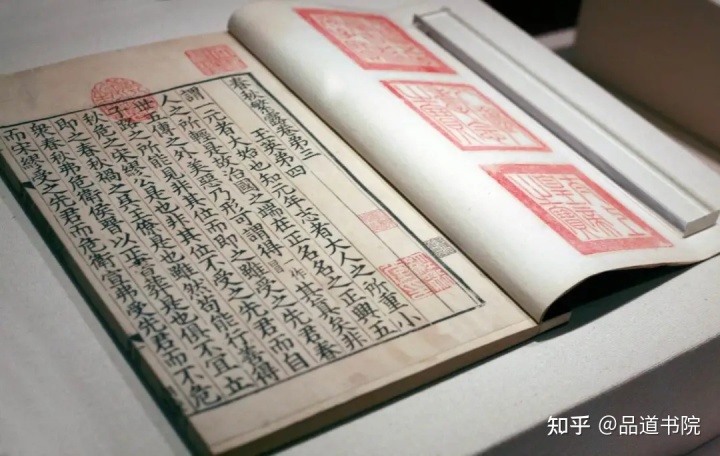 春秋繁露卷第三
王英第四
謂一元者大始也知元年志者大人之所重小
人之所輕是故治國之端在正名名之正興五
世五傳之外美惡乃形可謂得一作其真矣非
子路之所能見非其位而即之雖受之先君春
秋危之宋繆公是也非其位不受之先君而自
即之春秋禍之吳王僚是也雖然苟能行善得
衆春秋弗危衛侯晉以立書葬是也俱不宜立
而宋繆受之先君而危衛宣弗受先君而不危
知乎 @品道书院